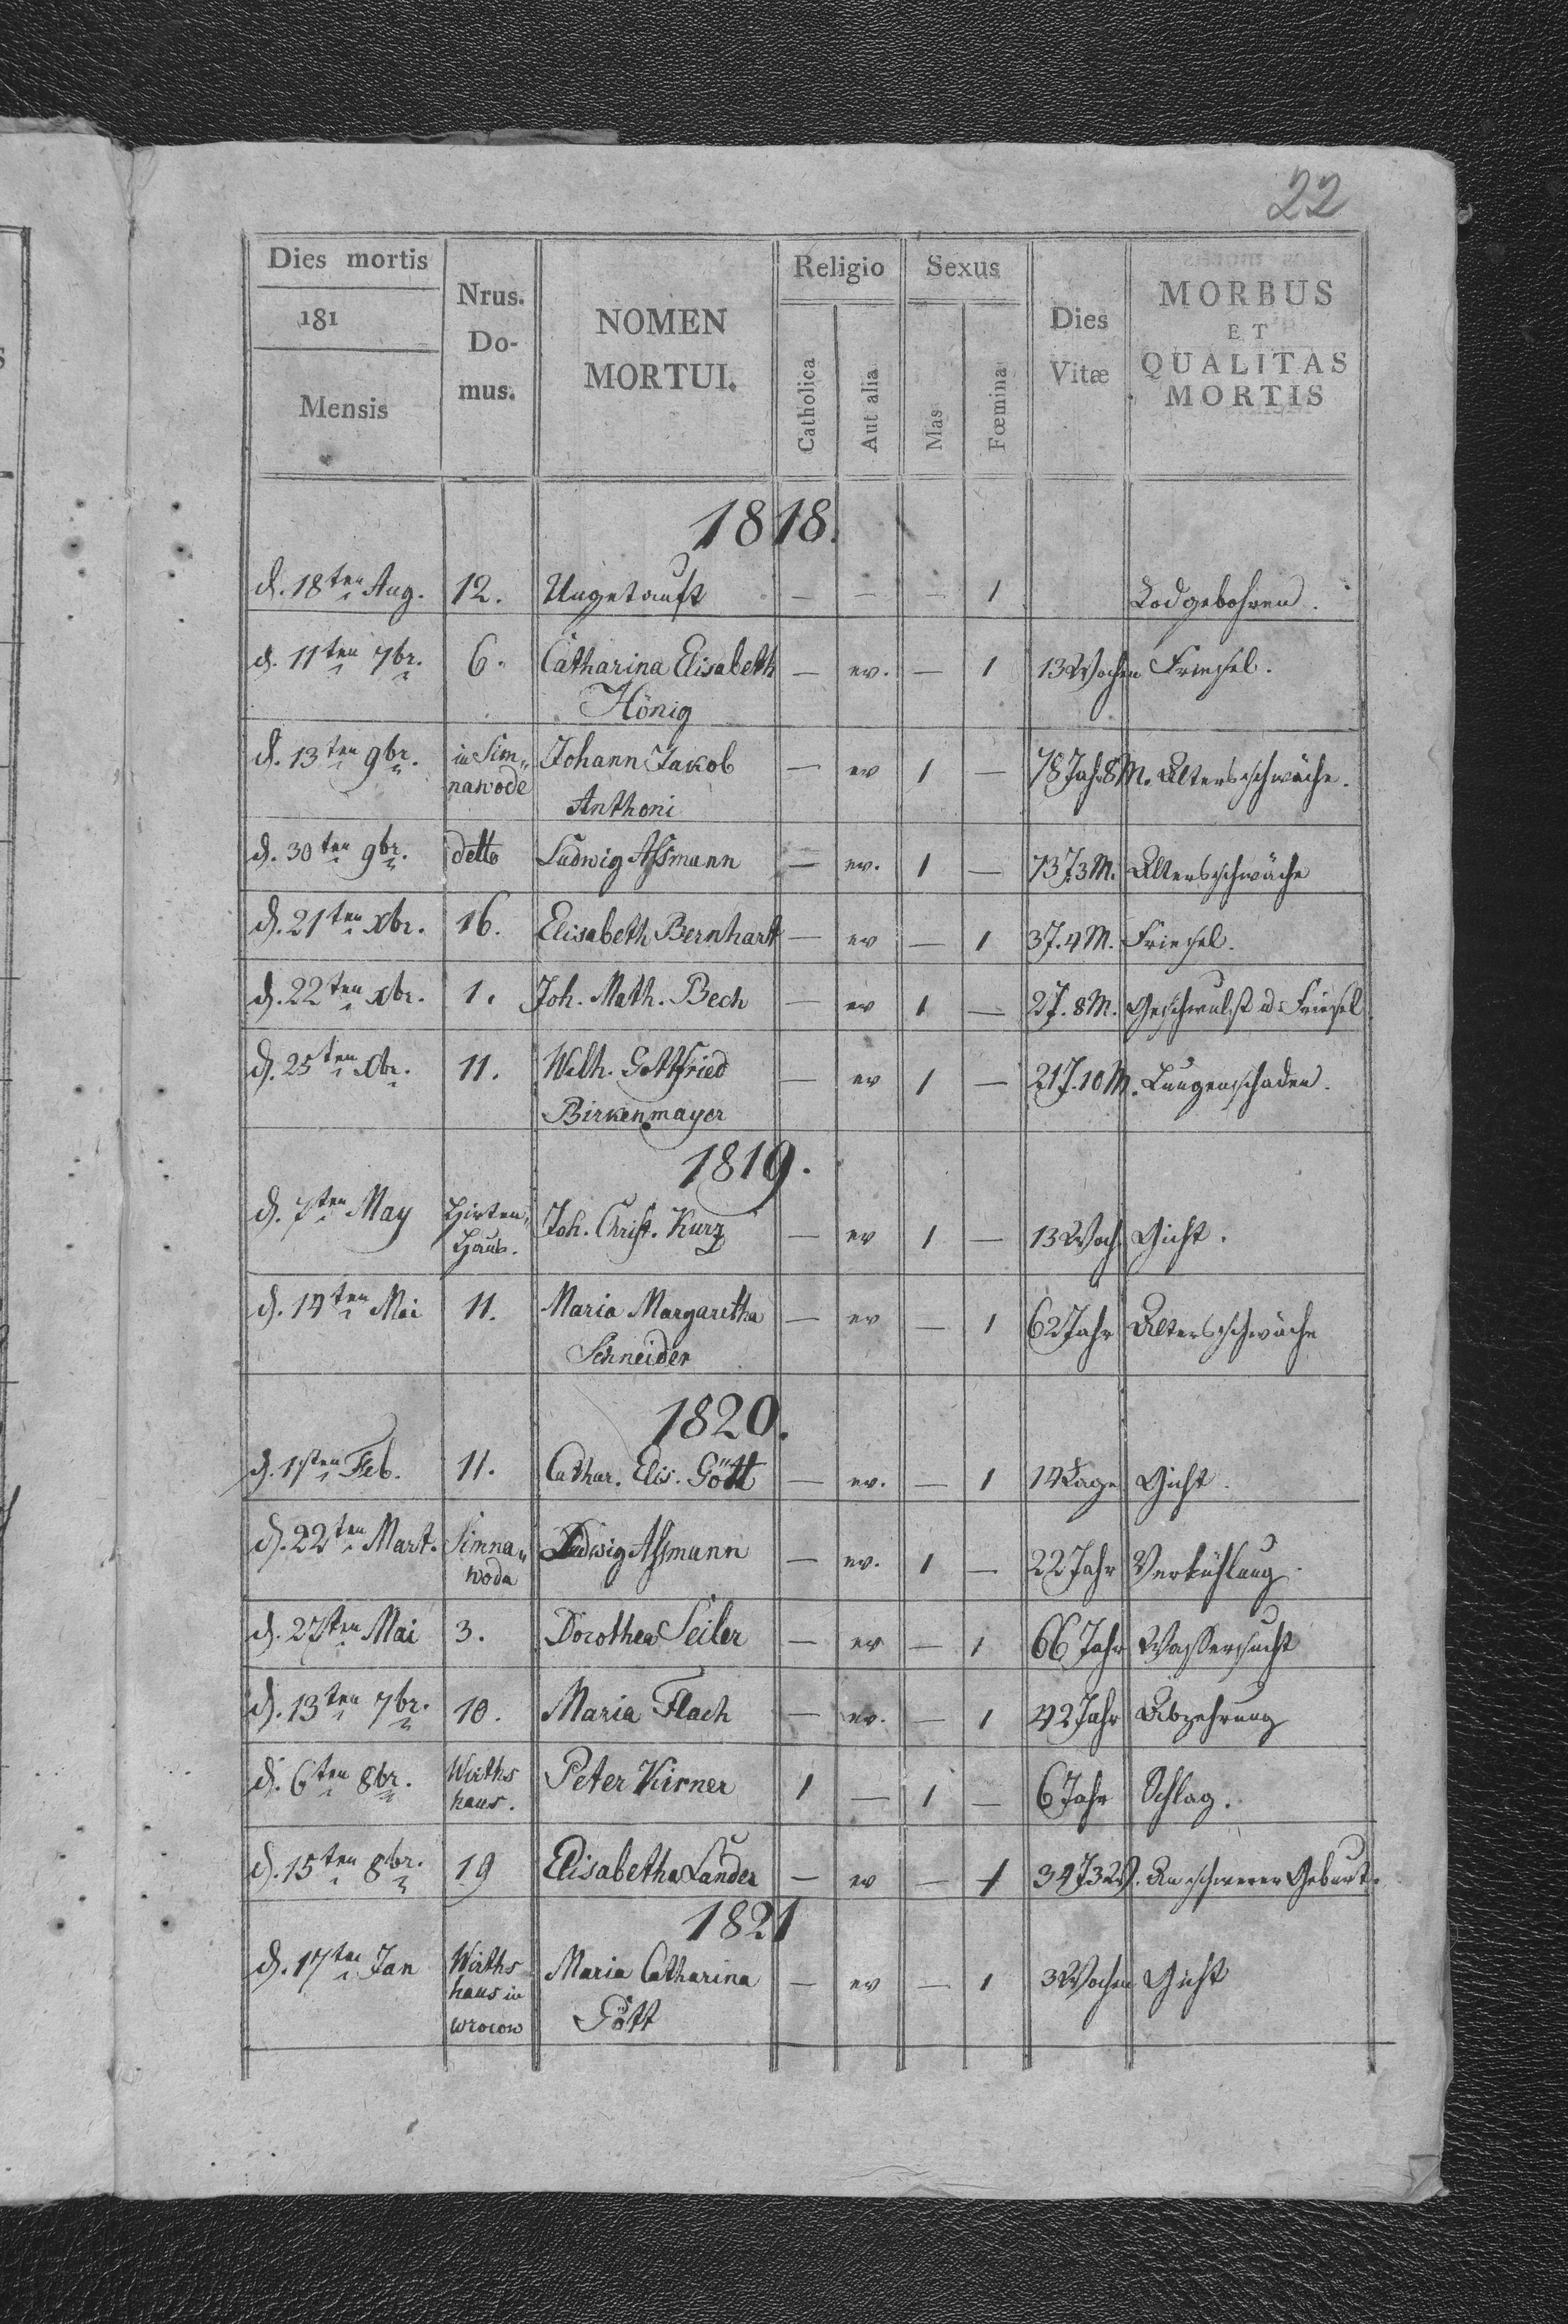 22
Dies mortis
181
Mensis
Nrus.
Do-
mus.
NOMEN
MORTUI.
Religio
Catholica
Aut alia
Sexus
Mas
Fœmina
Dies
Vitæ
MORBUS
ET
QUALITAS
MORTIS
1818.
d. 18ten Aug. 12. Ungetauft — — — 1 Todgebohren.
d. 11ten 7br. 6. Catharina Elisabeth — ev. — 1 13 Wochen Friesel.
Hönig
d. 13ten 9br. in Sim„ Johann Jakob — ev 1 — 78 Jahr 8 M. Altersschwäche.
nawode Anthoni
d. 30ten 9br. detto Ludwig Assmann — ev. 1 — 73 J 3 M. Altersschwäche
d. 21ten Xbr. 16. Elisabeth Bernhart — ev — 1 3 J. 4 M. Friesel.
d. 22ten Xbr. 1. Joh. Math. Bech — ev 1 — 2 J. 8 M. Geschwulst u. Friesel
d. 25ten Xbr. 11. Wilh. Gottfried — ev 1 — 21 J. 10 M. Lungenschaden.
Birkenmayer
1819.
d. 7ten May Hirten„ Joh. Christ. Kurz — ev 1 — 13 Woch. Gicht.
Haus.
d. 14ten Mai 11. Maria Margaretha — ev — 1 62 Jahr Altersschwäche
Schneider
1820.
d. 1sten Feb. 11. Cathar. Elis. Gött — ev. — 1 14 Tage Gicht.
d. 22ten Mart. Simna„ Ludwig Assmann — ev. 1 — 22 Jahr Verkühlung.
woda
d. 27ten Mai 3. Dorothea Seiler — ev — 1 66 Jahr Wassersucht
d. 13ten 7br. 10. Maria Flach — ev. — 1 42 Jahr Abzehrung
d. 6ten 8br. Wirths Peter Kirner 1 — 1 — 6 Jahr Schlag.
haus.
d. 15ten 8br. 19 Elisabetha Lander — ev — 1 34 J 3 W. An schwerer Geburt.
1821
d. 17ten Jan Wirths Maria Catharina — ev — 1 3 Wochen Gicht
haus in Gött
wrocow